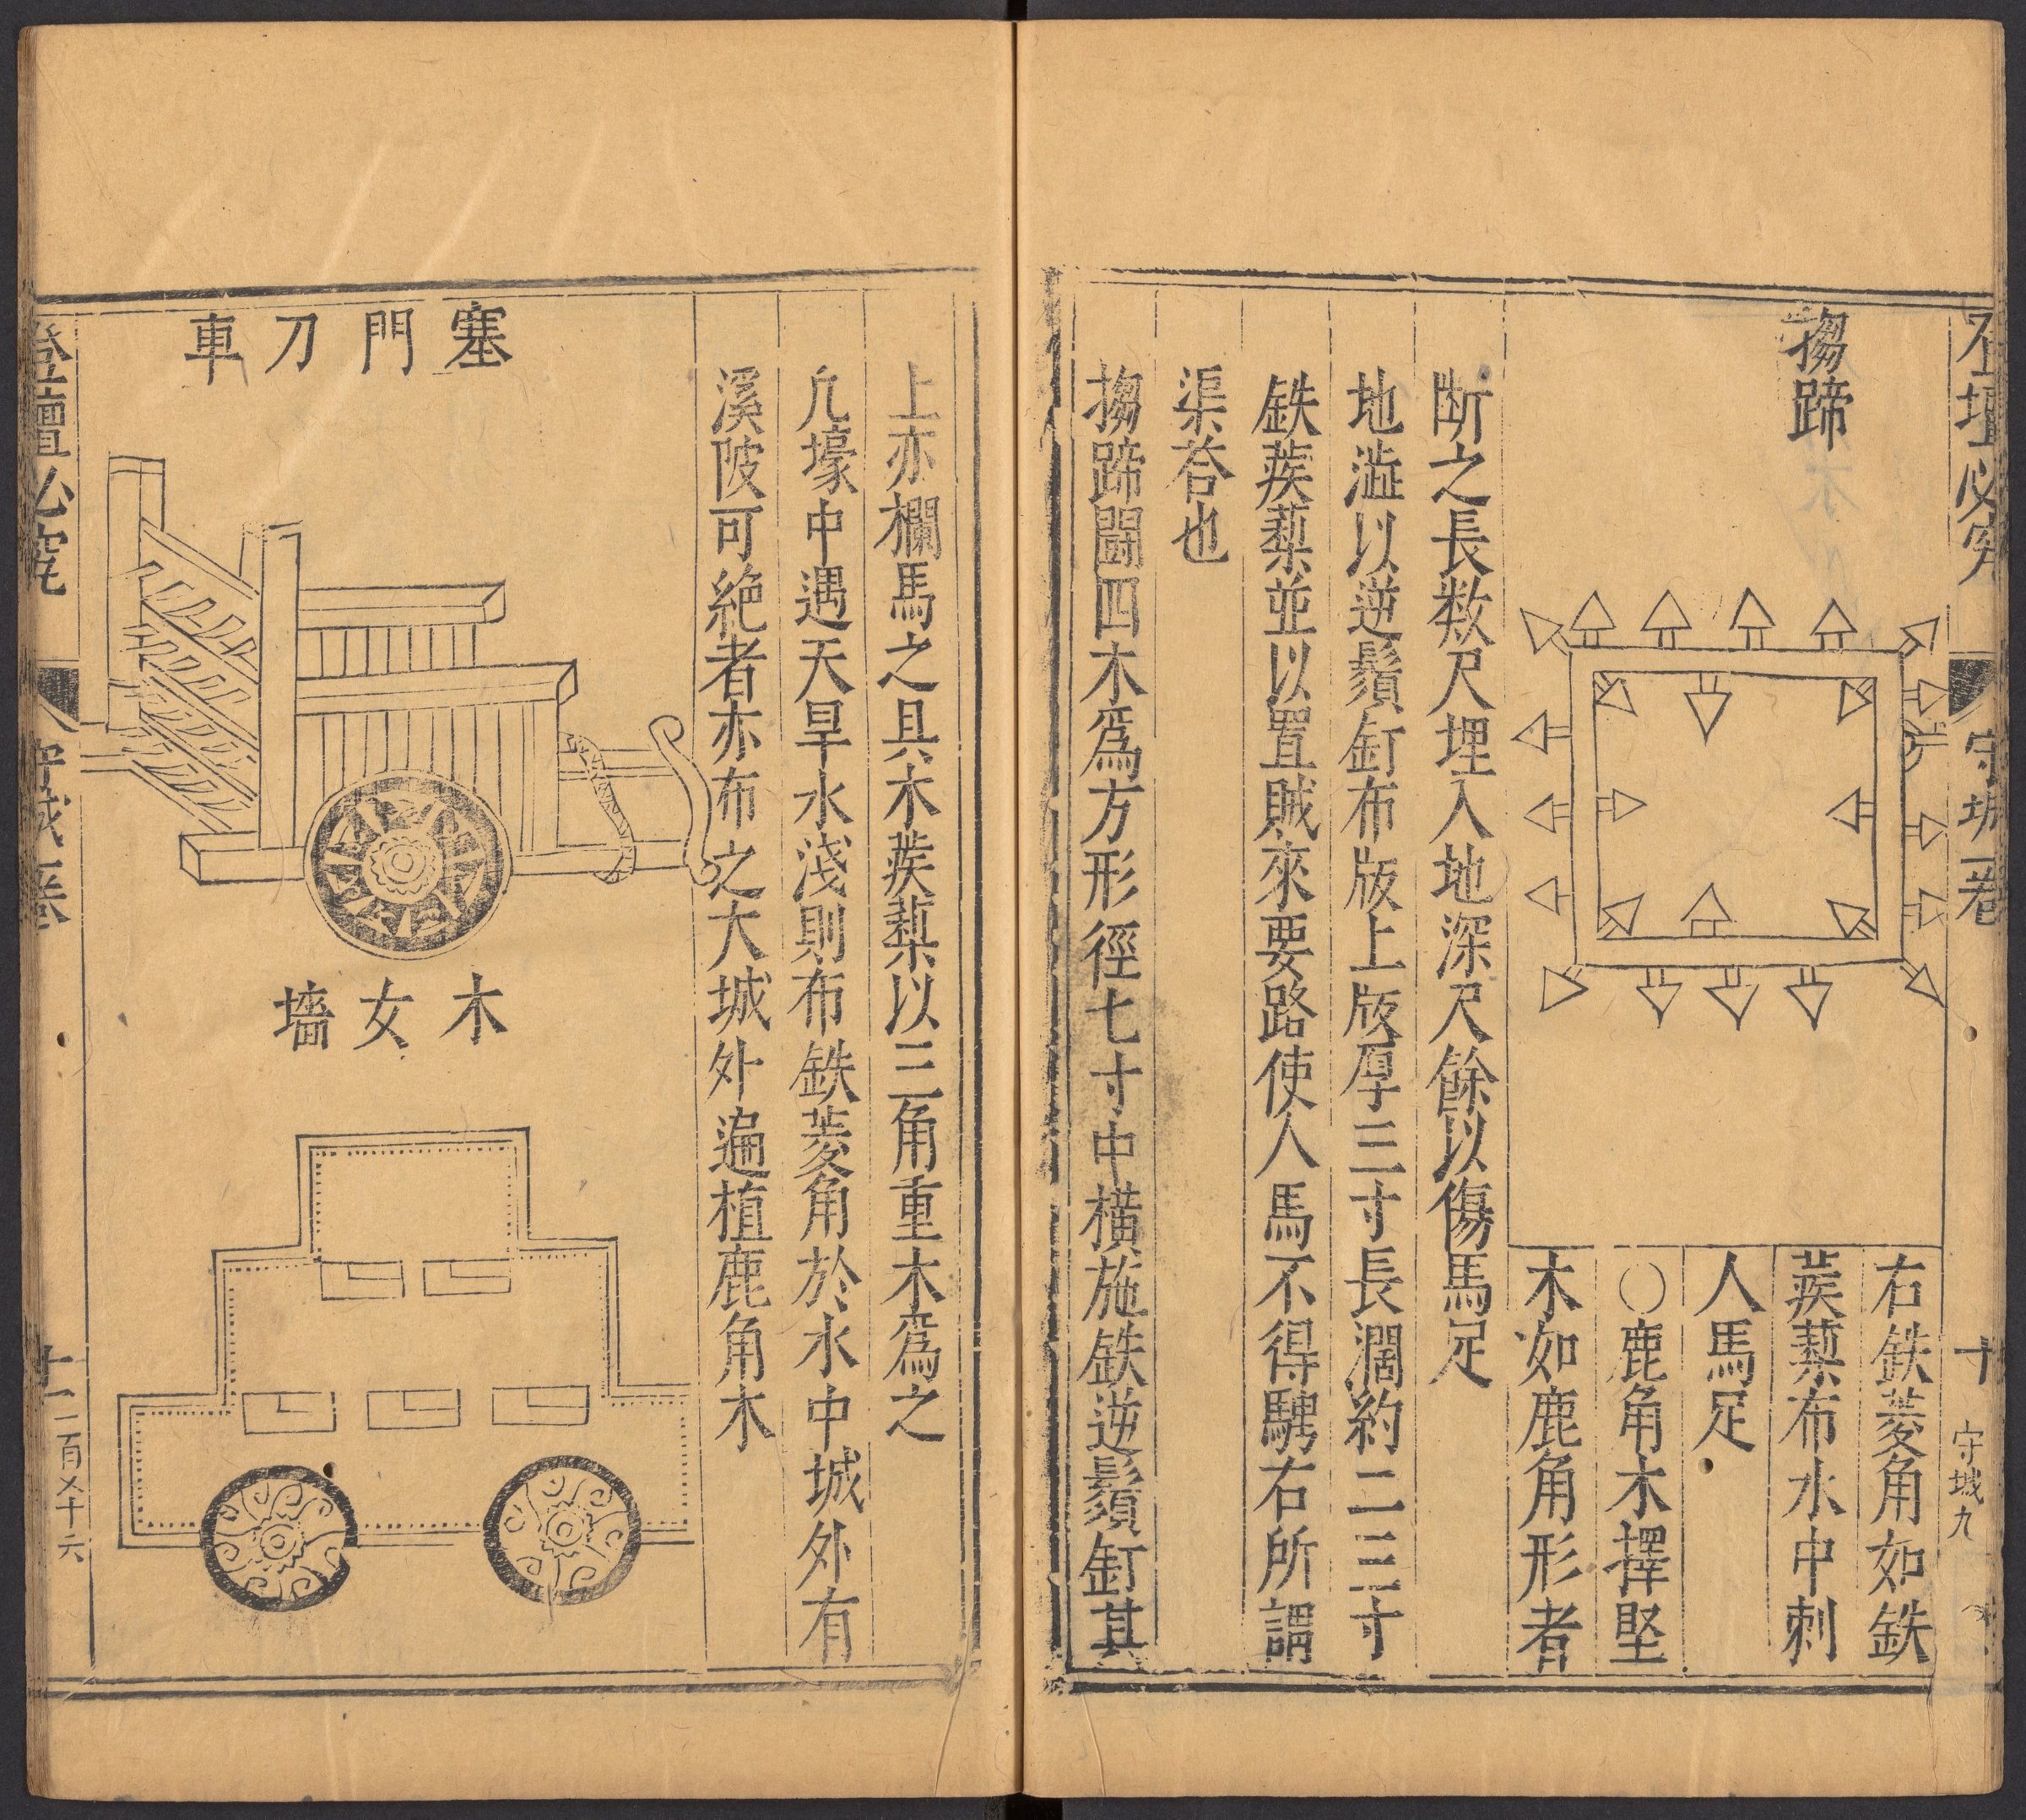 登壇必究
守城一卷
十
守城九
搊蹄
右鉄菱角如鉄
蒺蔾布水中刺
人馬足
○鹿角木擇堅
木如鹿角形者
断之長数尺埋入地深尺餘以傷馬足
地澁以逆鬚釘布版上版厚三寸長濶約二三寸
鉄蒺蔾並以置賊來要路使人馬不得騁右所謂
渠荅也
搊蹄鬪四木爲方形徑七寸中横施鉄逆鬚釘其
上亦欄馬之具木蒺蔾以三角重木爲之
凢壕中遇天旱水淺則布鉄菱角於水中城外有
溪陂可絶者亦布之大城外遍植鹿角木
塞門刀車
木女墻
登壇必究
守城一卷
十一
二百〤十六